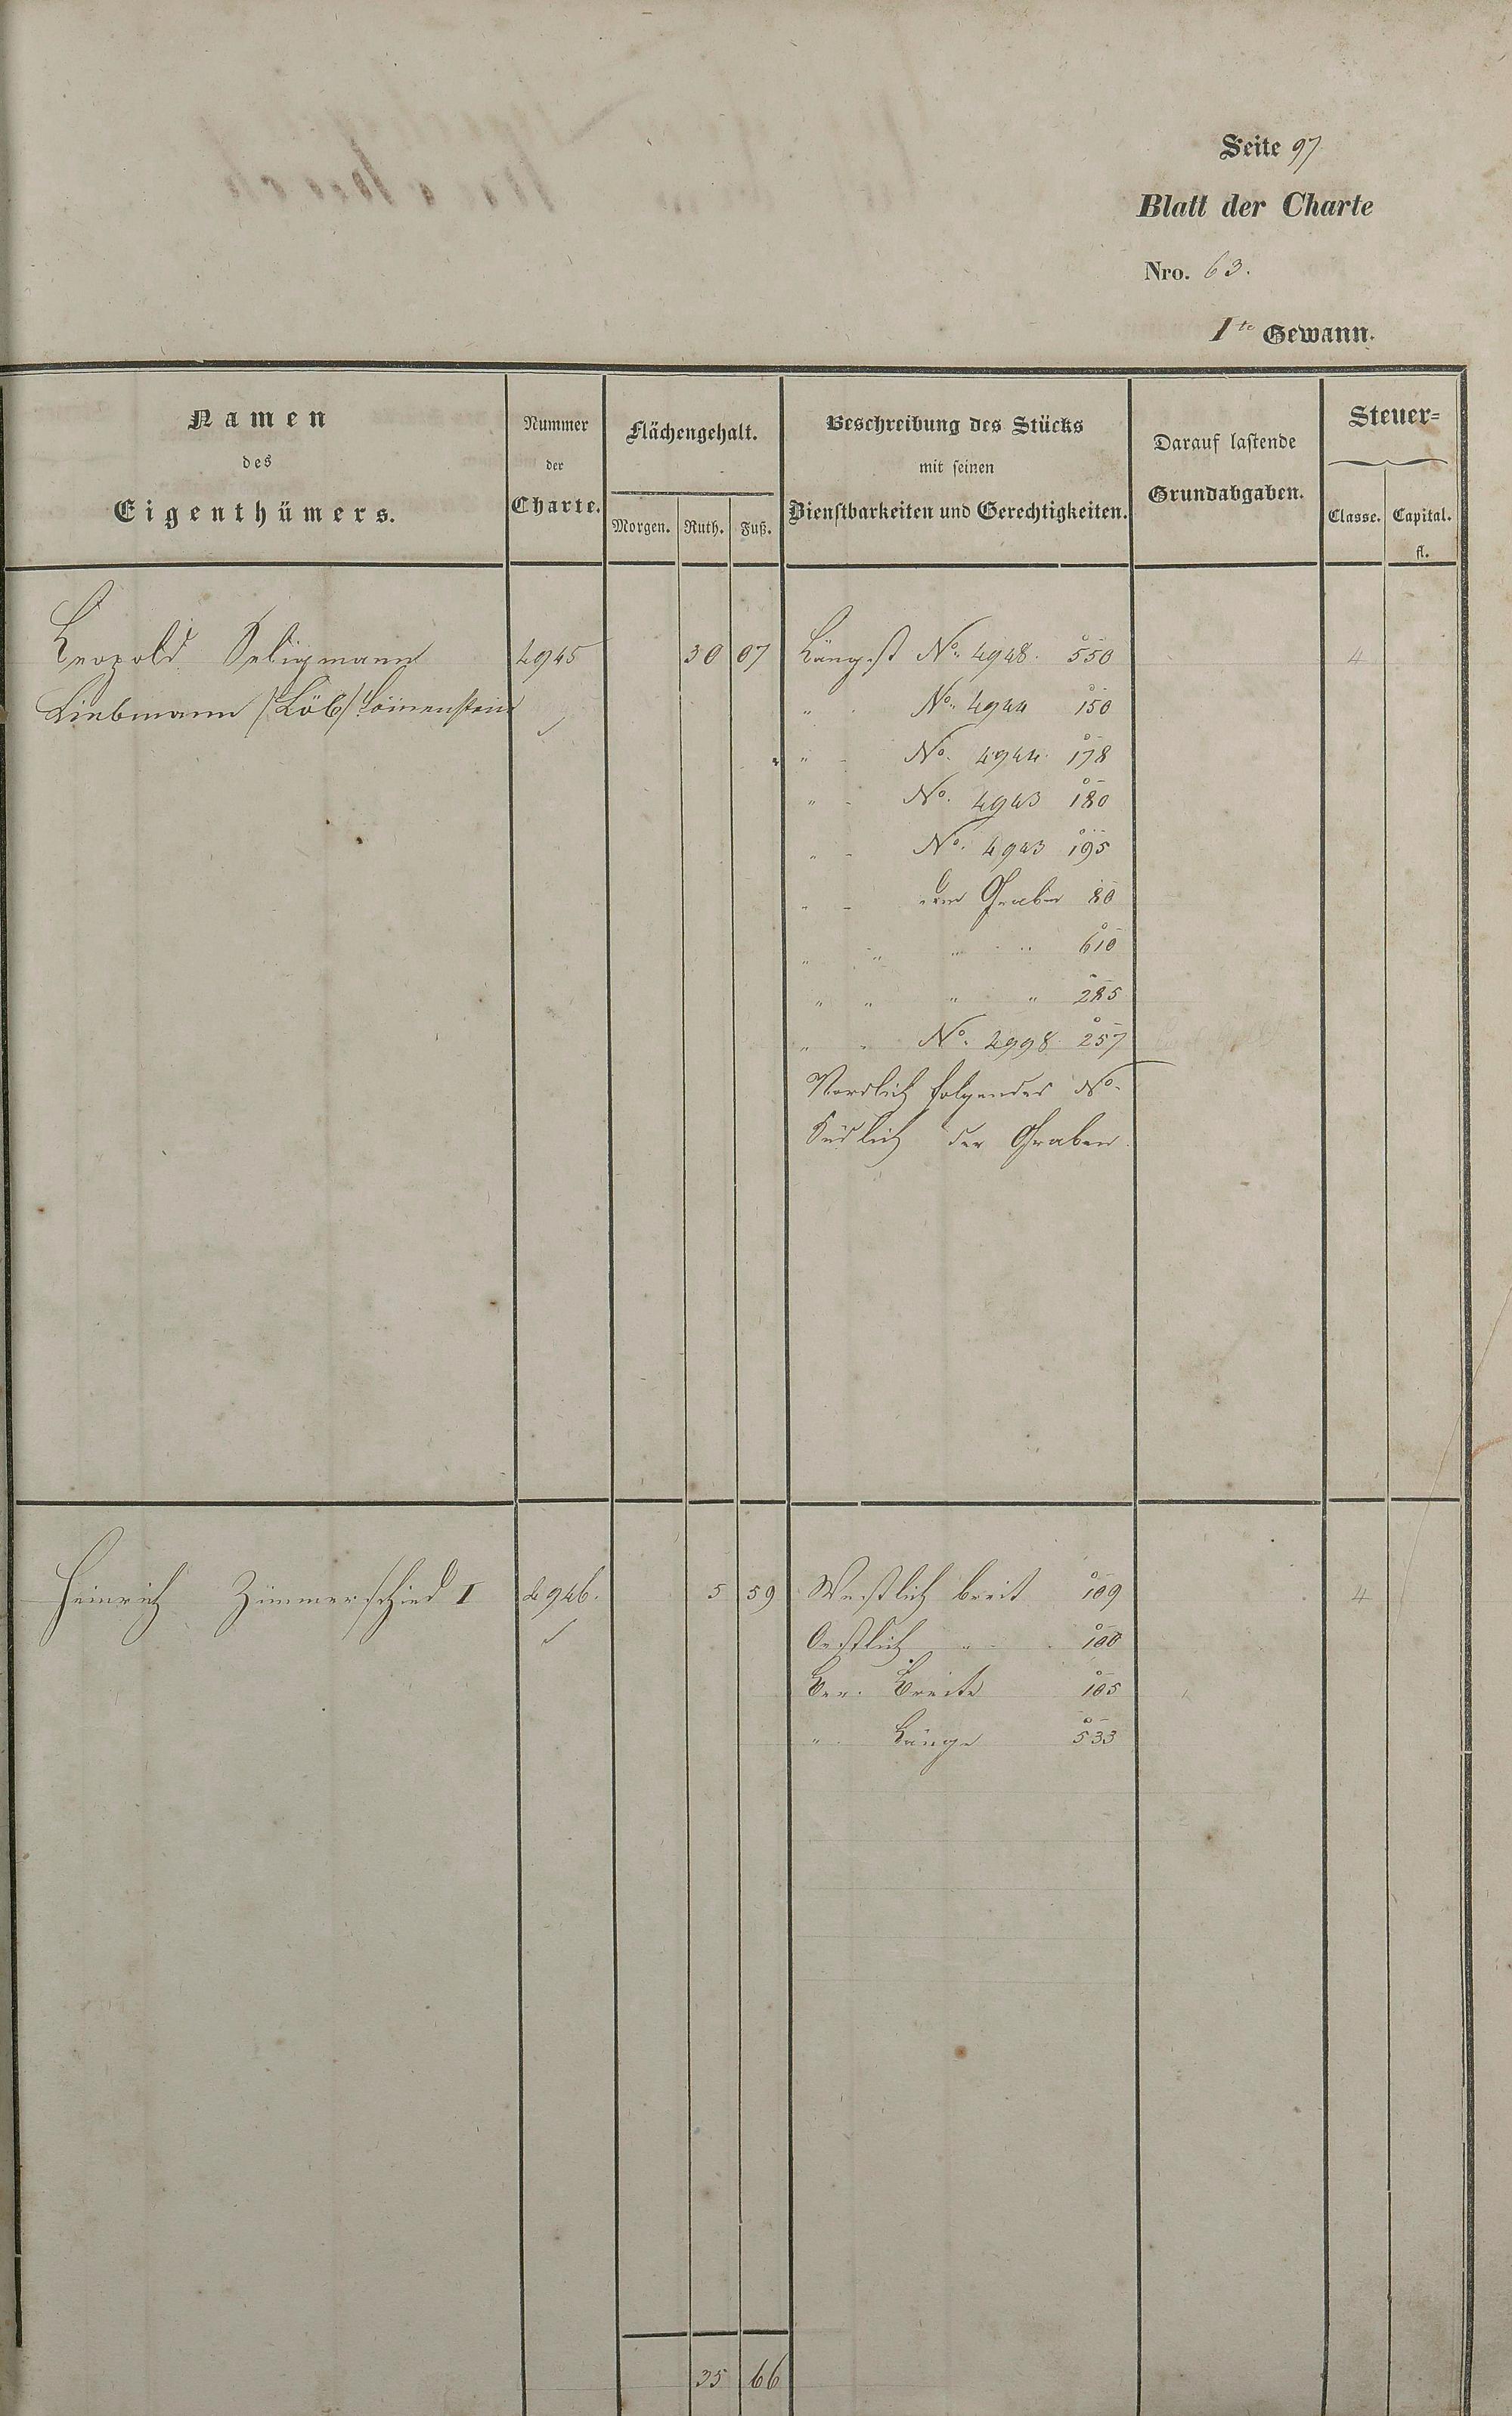 Seite 97
Blatt der Charte
Nro. 63.
I te Gewann.
Namen
des
Eigenthümers.
Nummer
der
Charte.
Flächengehalt.
Morgen. Ruth. Fuß.
Beschreibung des Stücks
mit seinen
Dienstbarkeiten und Gerechtigkeiten.
Darauf lastende
Grundabgaben.
Steuer=
Classe. Capital.
fl.
Leopold Seligmann 4945 30 07 Längst No. 4948. 550 4
Liebmann /Löb/ Löwenstein " No. 4944 150
" - No. 4944. 178
" - No. 4943 180
" - No. 4943 195
" - dem Graben 80
" " " " 610
" " " " 285
" " No. 4998. 257
Nordlich folgendes No.
Südlich der Graben.
Heinrich Zimmerschied I 4946. 5 59 Westlich breit 109 4
Oestlich " 100
Ber. Breite 105
" Länge 533
35 66